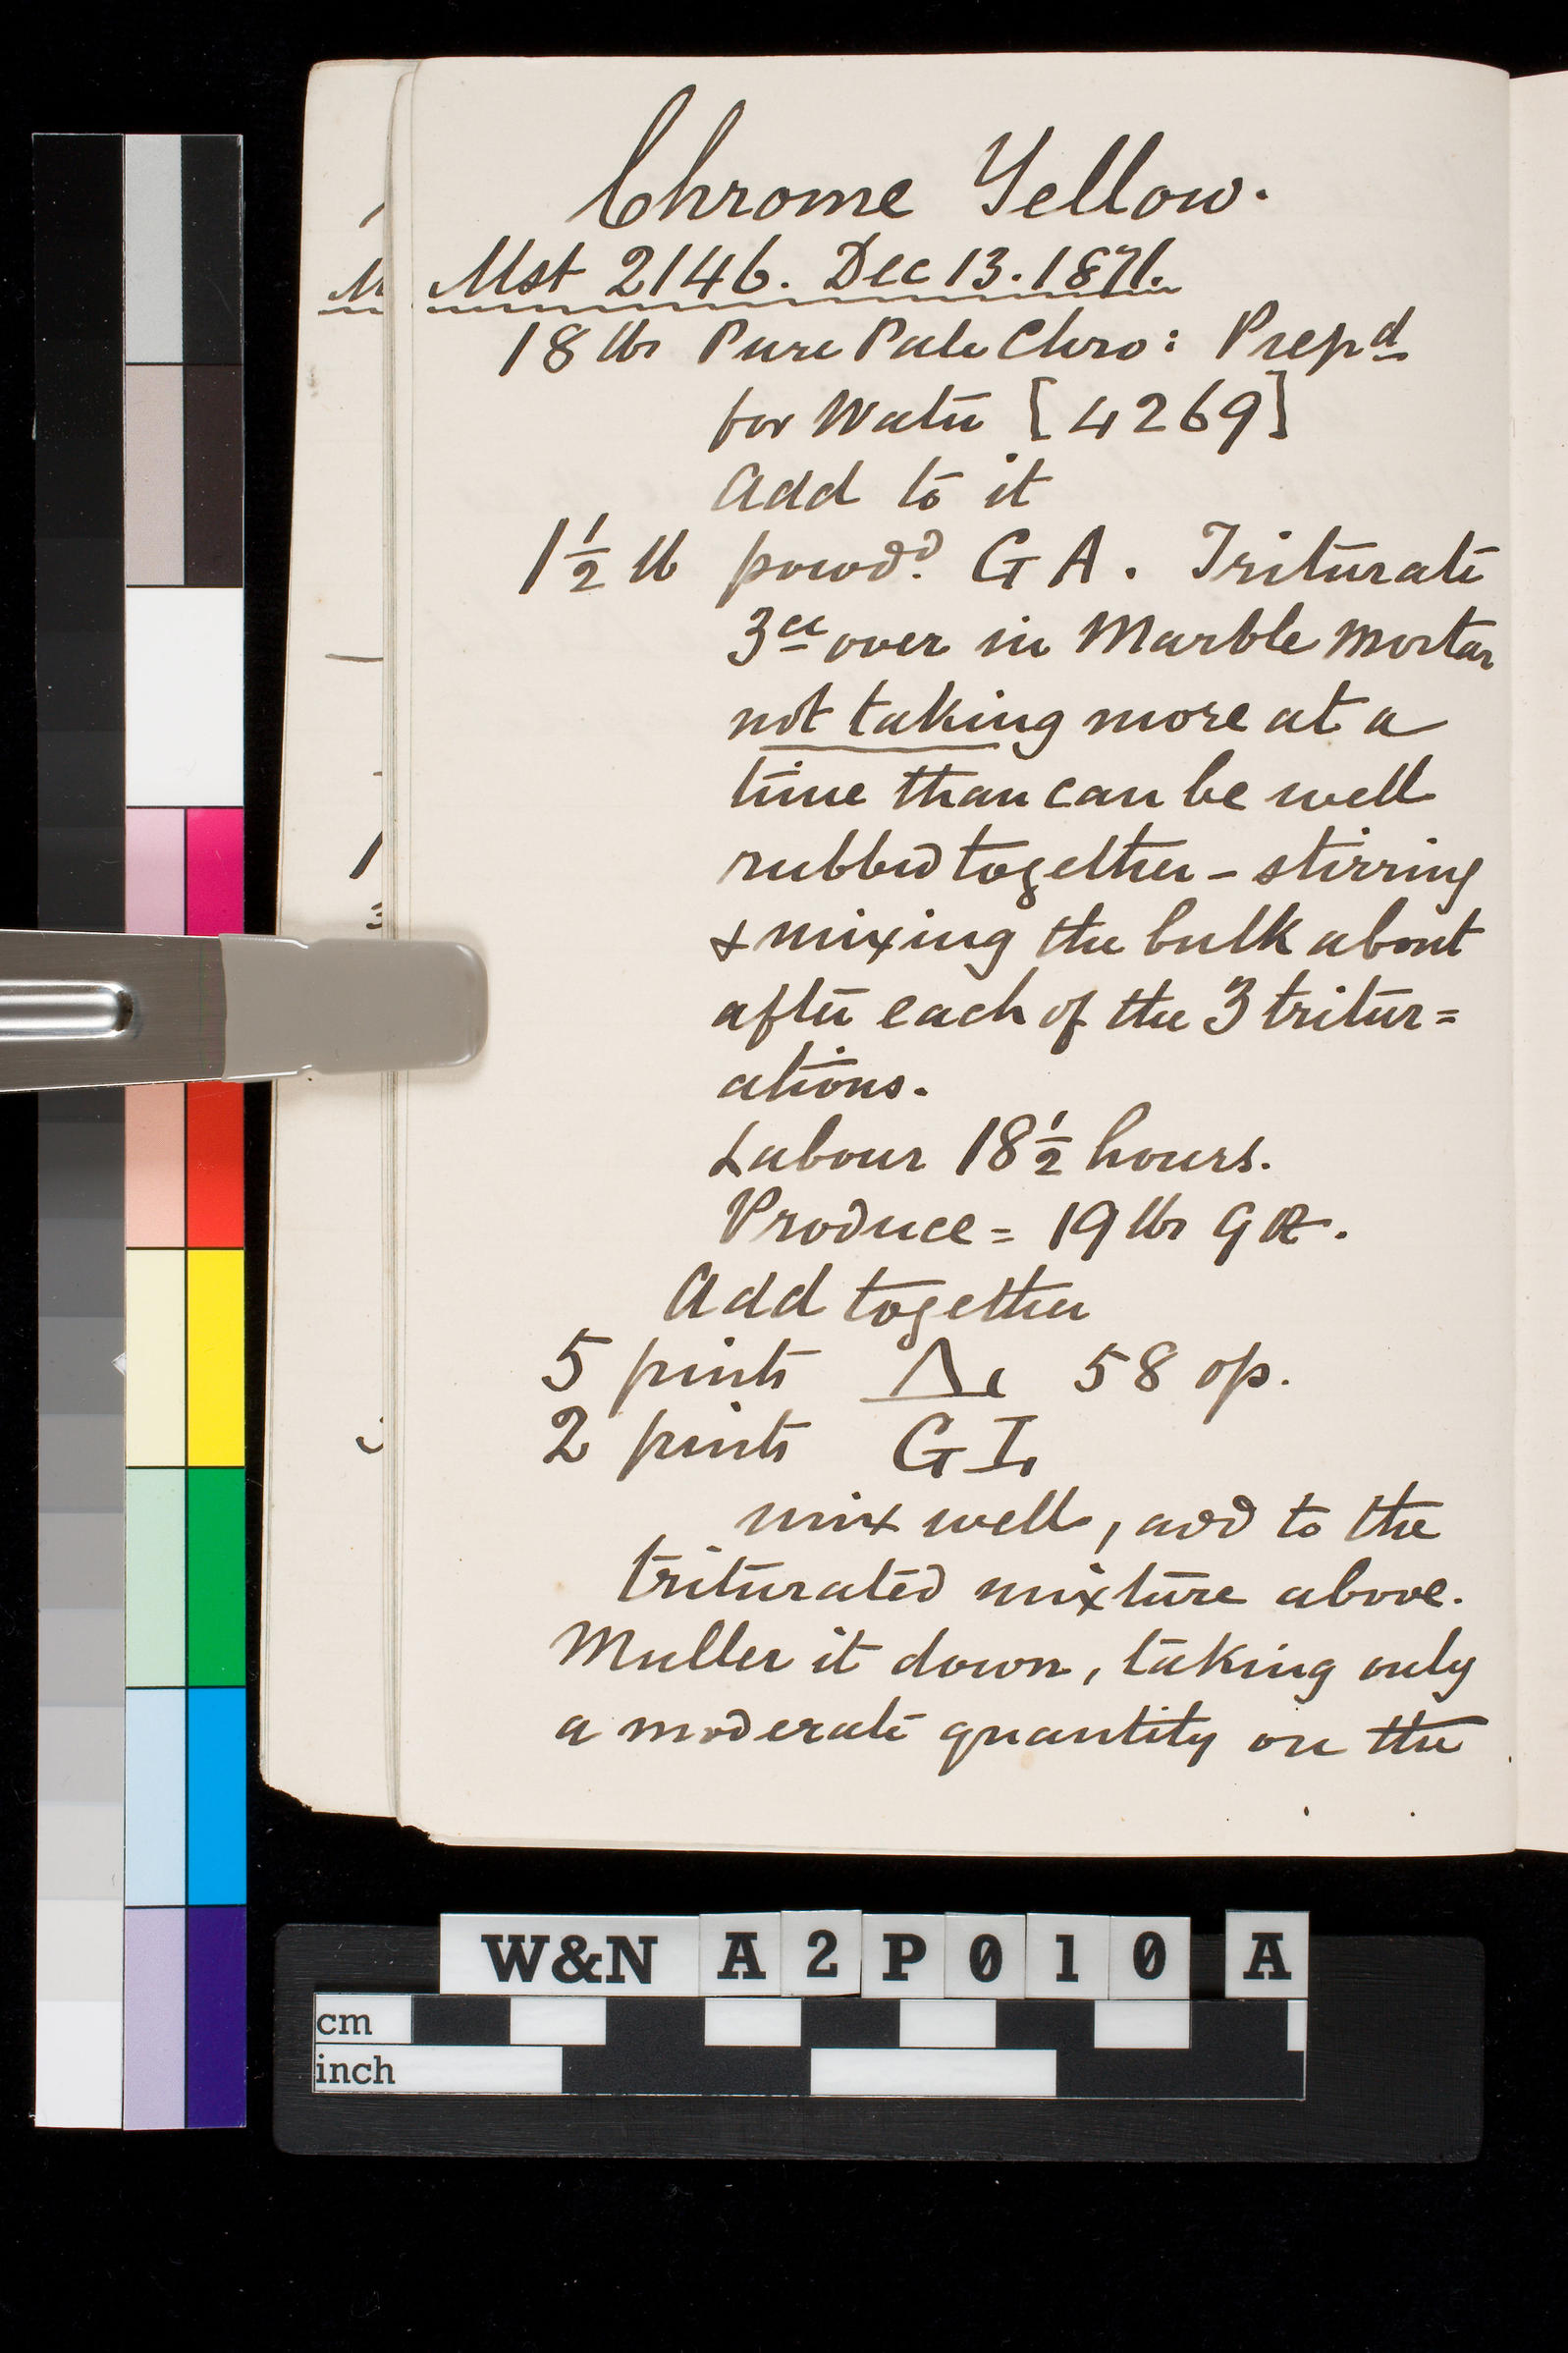 Chrome Yellow.
Mst 2146. Dec 13. 1871.
18 lbs Pure Pale Chro: Prepd
for Water [4269]
Add to it
1½ lb powdd. G A. Triturate
3ce over in Marble Mortar
not taking more at a
time than can be well
rubbed together - stirring
& mixing the bulk about
after each of the 3 tritur=
ations.
Labour 18½ hours.
Produce = 19 lbs
Add together
5 pints 58 op.
2 pints G I,
mix well, add to the
triturated mixture above.
Muller it down, taking only
a moderate quantity on the
W&N A2P010 A
cm
inch